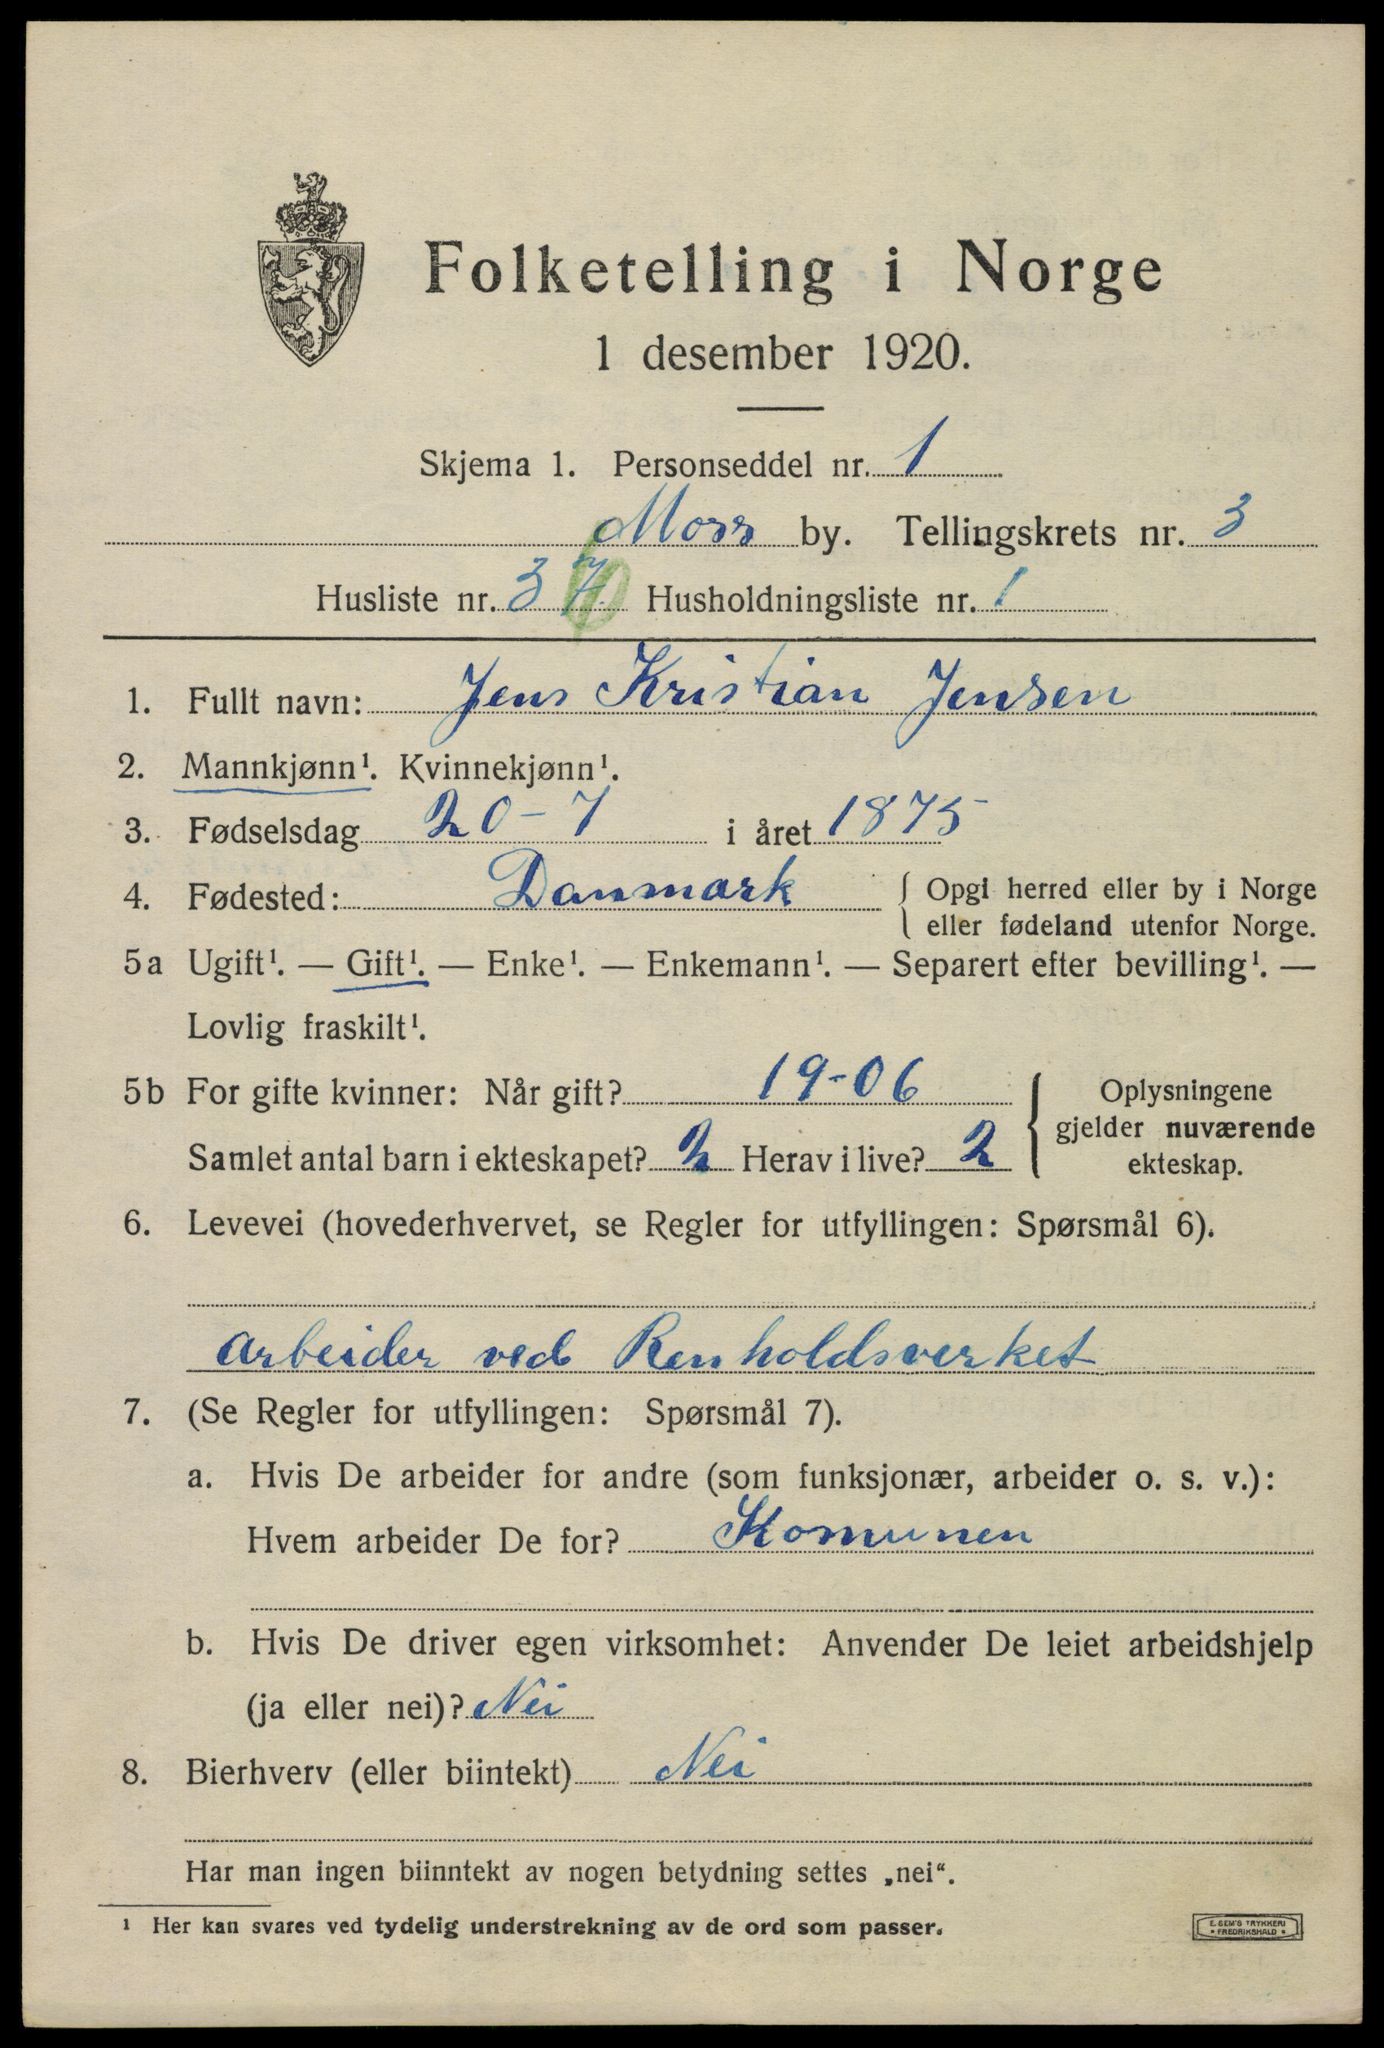 Folketelling i Norge
1 desember 1920.
Skjema 1. Personseddel nr. 1
Moss by. Tellingskrets nr. 3
Husliste nr. 37 Husholdningsliste nr. 1
1. Fullt navn: Jens Kristian Jensen
2. Mannkjønn¹. Kvinnekjønn¹.
3. Fødselsdag 20-7 i året 1875
4. Fødested: Danmark { Opgi herred eller by i Norge
eller fødeland utenfor Norge.
5a Ugift¹. — Gift¹. — Enke¹. — Enkemann¹. — Separert efter bevilling¹. —
Lovlig fraskilt¹.
5b For gifte kvinner: Når gift? 19-06
Samlet antal barn i ekteskapet? 2 Herav i live? 2
Oplysningene
gjelder nuværende
ekteskap.
6. Levevei (hovederhvervet, se Regler for utfyllingen: Spørsmål 6).
arbeider ved Renholdsverket
7. (Se Regler for utfyllingen: Spørsmål 7).
a. Hvis De arbeider for andre (som funksjonær, arbeider o. s. v.):
Hvem arbeider De for? Komunen
b. Hvis De driver egen virksomhet: Anvender De leiet arbeidshjelp
(ja eller nei)? Nei
8. Bierhverv (eller biintekt) Nei
Har man ingen biinntekt av nogen betydning settes „nei“.
¹ Her kan svares ved tydelig understrekning av de ord som passer.
E. SEM'S TRYKKERI
• FREDRIKSHALD •